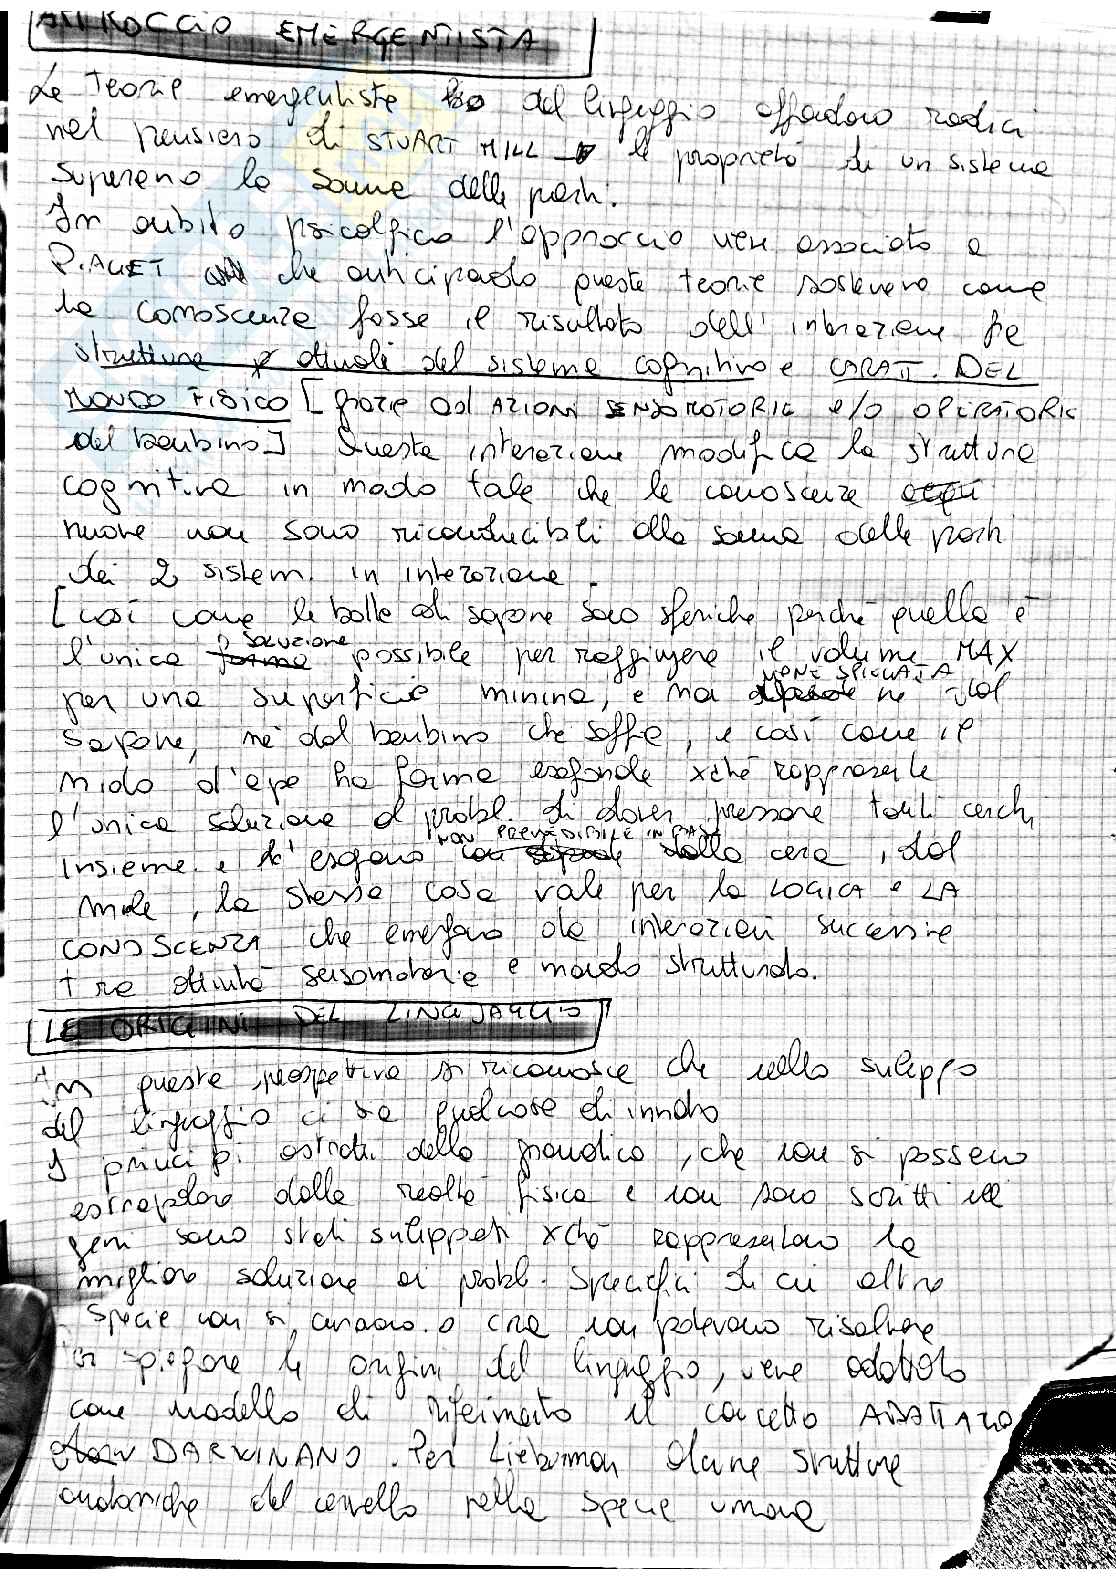 APPROCCIO EMERGENTISTA
Le teorie emergentiste del linguaggio affondano radici
nel pensiero di STUART MILL → le proprietà di un sistema
superano la somma delle parti.
In ambito psicologico l'approccio viene associato a
PIAGET che anticipando queste teorie sosteneva come
la conoscenza fosse il risultato dell'interazione fra
strutture attuali del sistema cognitivo e CARATT. DEL
MONDO FISICO [grazie ad AZIONI SENSOMOTORIE e/o OPERATORIE
del bambino] Questa interazione modifica la struttura
cognitiva in modo tale che le conoscenze
nuove non sono riconducibili alla somma delle parti
dei 2 sistemi in interazione.
[così come le bolle di sapone sono sferiche perché quella è
l'unica soluzione possibile per raggiungere il volume MAX
per una superficie minima, e non è né dal
sapone, né dal bambino che soffia, e così come il
nido d'ape ha forma esagonale xché rappresenta
l'unica soluzione al probl. di dover pressare tanti cerchi
insieme. e l'esagono NON PREVEDIBILE IN BASE dalla cera, dal
miele, la stessa cosa vale per la LOGICA e LA
CONOSCENZA che emergono da interazioni successive
tra attività sensomotorie e mondo strutturato.
LE ORIGINI DEL LINGUAGGIO
In questa prospettiva si riconosce che nello sviluppo
del linguaggio ci sia qualcosa di innato
I principi astratti della grammatica, che non si possono
estrapolare dalla realtà fisica e non sono scritti nei
geni sono stati sviluppati xché rappresentano la
migliore soluzione ai probl. specifici di cui altre
specie non si curano o che non potevano risolvere
spiegare le origini del linguaggio, viene adottato
come modello di riferimento il concetto
DARWINIANO. Per Lieberman alcune strutture
anatomiche del cervello nella specie umana